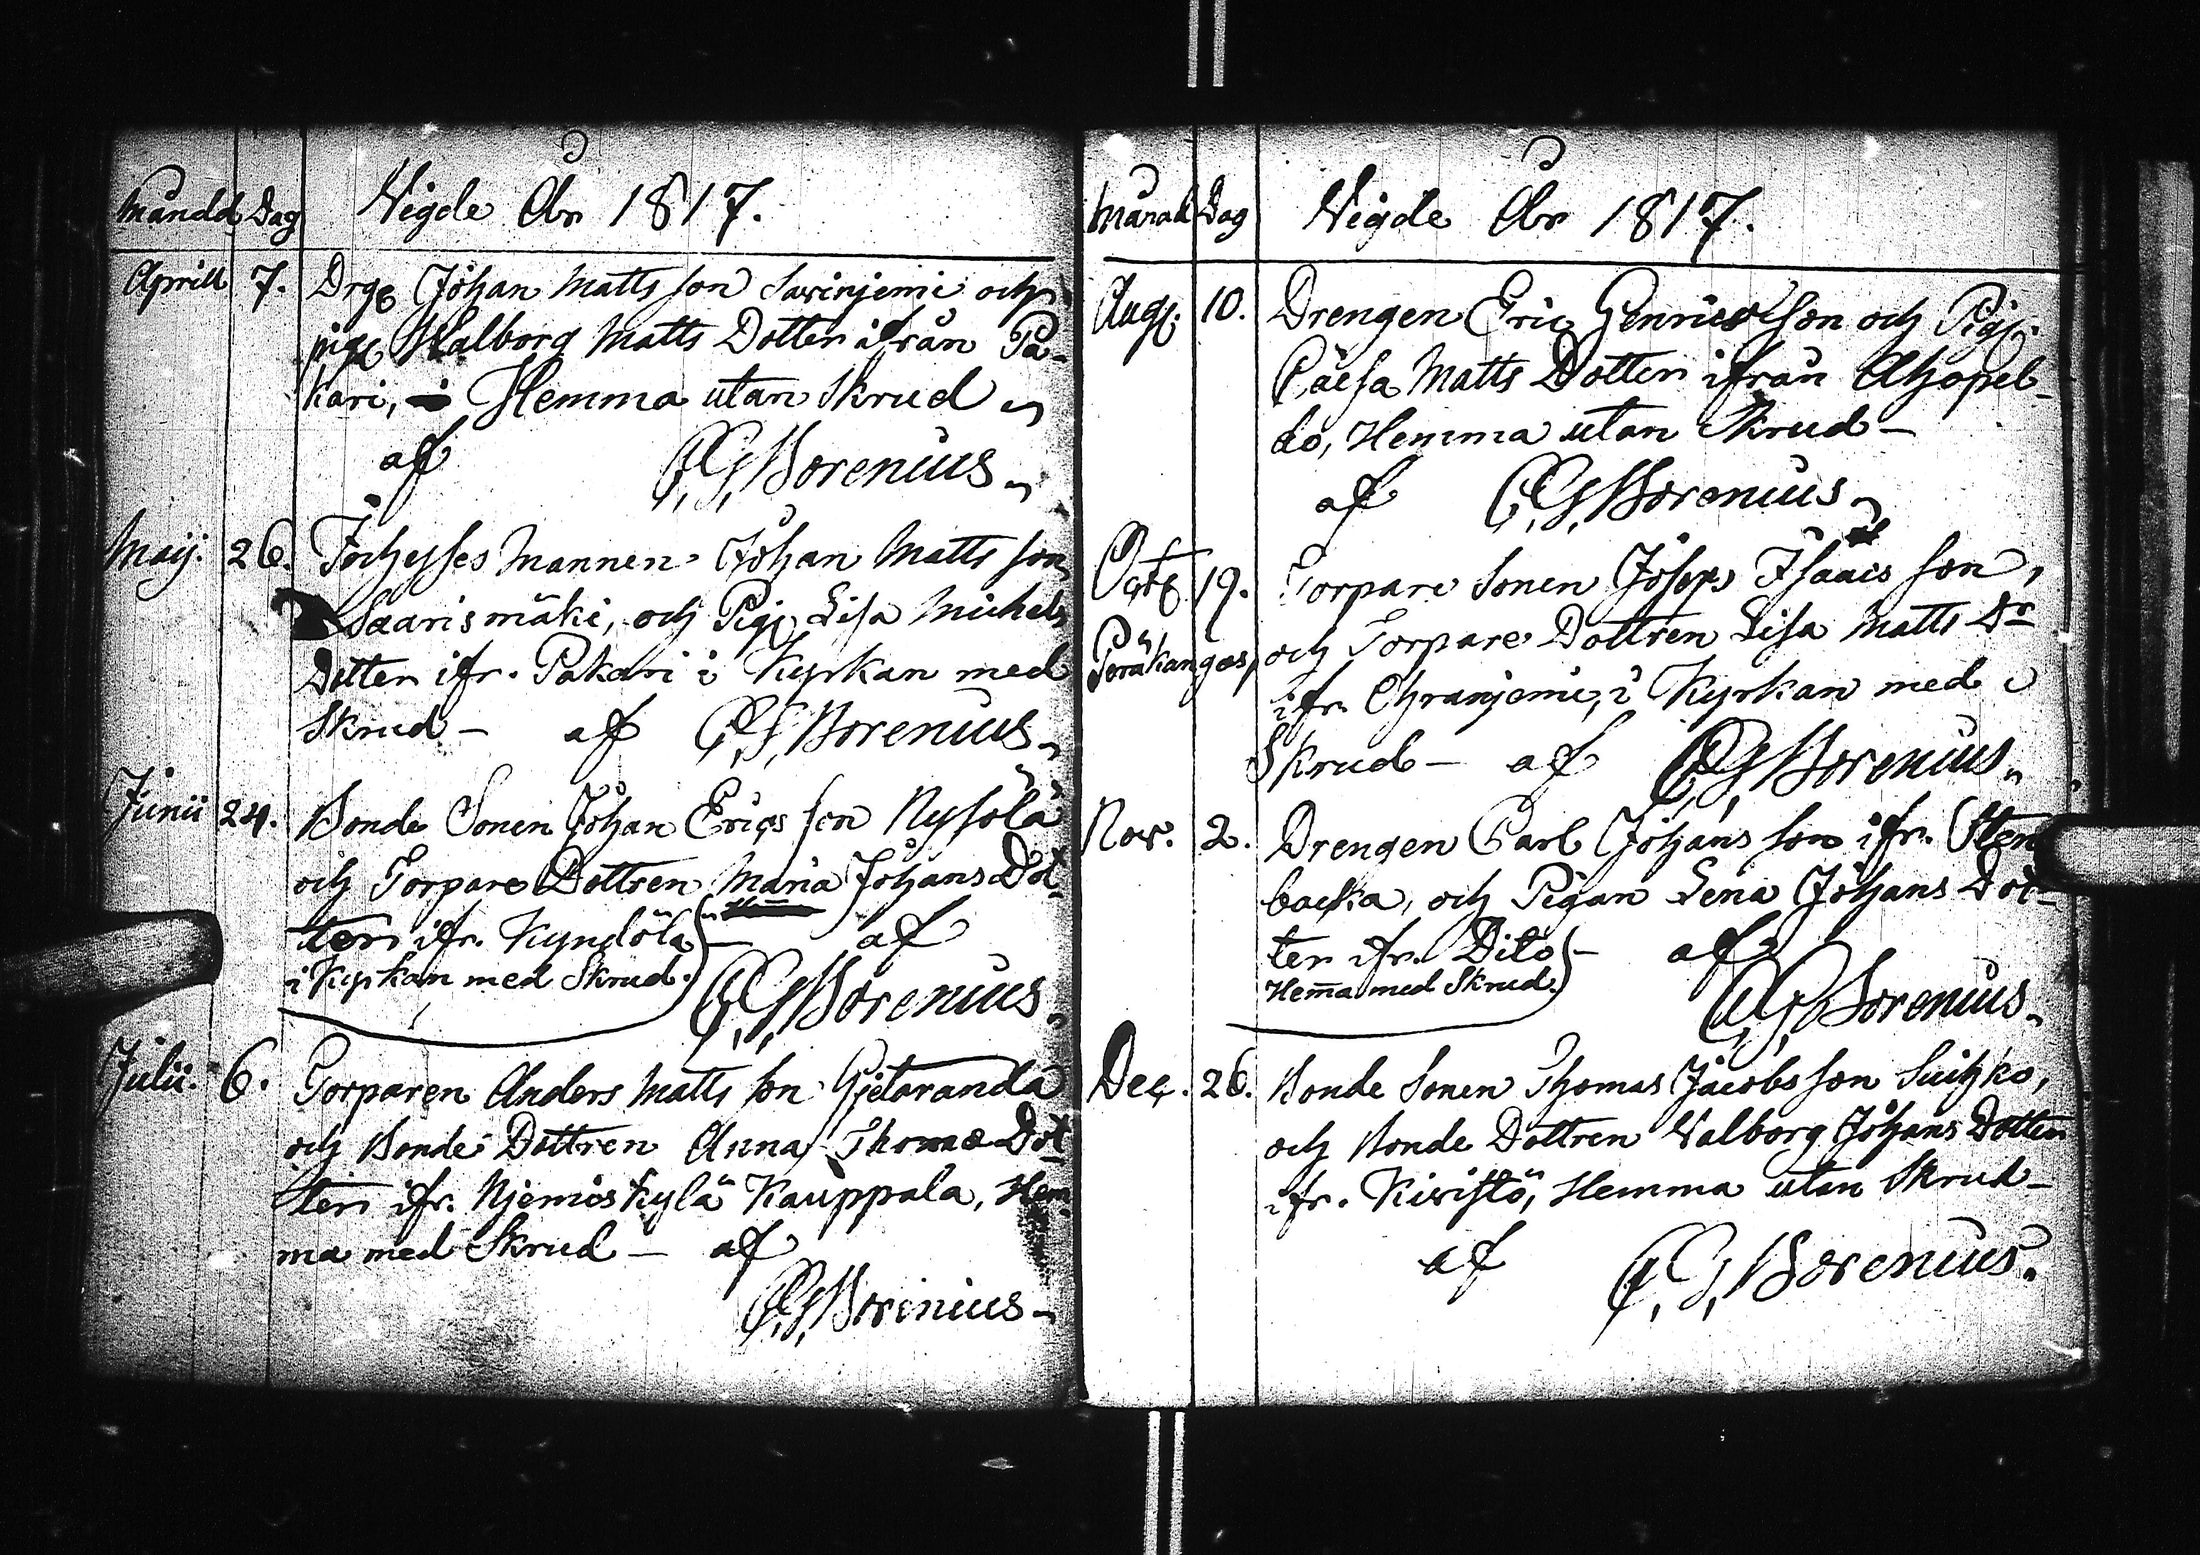 Månad Dag Vigde År 1817.
Aprill 7. Drgg Johan Matts son Savinjemi och
pige Walborg Matts Dotter ifrån Pa-
kari, Hemma utan Skrud
af C,G,Borenius
Maij. 26. Johan Matts son
Saarismäki, och Pig. Lisa Michels
Dotter ifr. Pakari i Kyrkan med
Skrud - af C,G,Borenius
Junii 24. Bonde Sonen Johan Erics son Nysölä
och Torpare Dottren Maria Johans Dot-
ter ifr. Kyndölä - af
i Kyrkan med Skrud.
C,G,Borenius
Julii. 6. Torparen Anders Matts son Hjetaranda
och Bonde Dottren Anna Thomæ Dot
ter ifr. Njemis kylä Kauppala, Hem-
ma med Skrud - af
C,G,Borenius -
Månad Dag Vigde År 1817.
Aug. 10. Drengen Eric Henrics son och Pig.
Caisa Matts Dotter ifrån Ahopel-
do, Hemma utan Skrud -
af C,G,Borenius
Octb 19. Torpare Sonen Josep Isaacs son,
Peräkangas, och Torpare Dottren Lisa Matts Dr
ifr. Ohranjemi, i Kyrkan med
Skrud - af C,G,Borenius
Nov. 2. Drengen Carl Johans son ifr. Sten
backa, och Pigan Lena Johans Dot-
ter ifr. Dito - af
Hem̄a med Skrud.
C,G,Borenius
Dec. 26. Bonde Sonen Thomas Jacobs son Suihko,
och Bonde Dottren Valborg Johans Dotter
ifr. Kivistö, Hemma utan Skrud -
af C,G,Borenius.